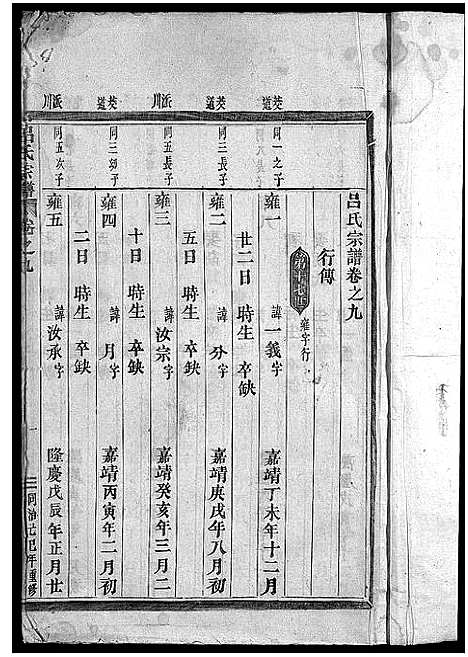 呂氏宗譜卷之九
行傳
雍字行
葵道
同一之子
雍一 諱一義字 嘉靖丁未年十二月
廿二日 時生 卒缺
葵道
同三長子
雍二 諱 字 嘉靖庚戌年八月初
五日 時生 卒缺
派川
同五長子
雍三 諱汝宗字 嘉靖癸亥年三月二
十日 時生 卒缺
葵道
同三幼子
雍四 諱 月字 嘉靖丙寅年二月初
二日 時生 卒缺
派川
同五次子
雍五 諱汝承字 隆慶戊辰年正月廿
呂氏宗譜 卷之九 一 同治己巳年重修